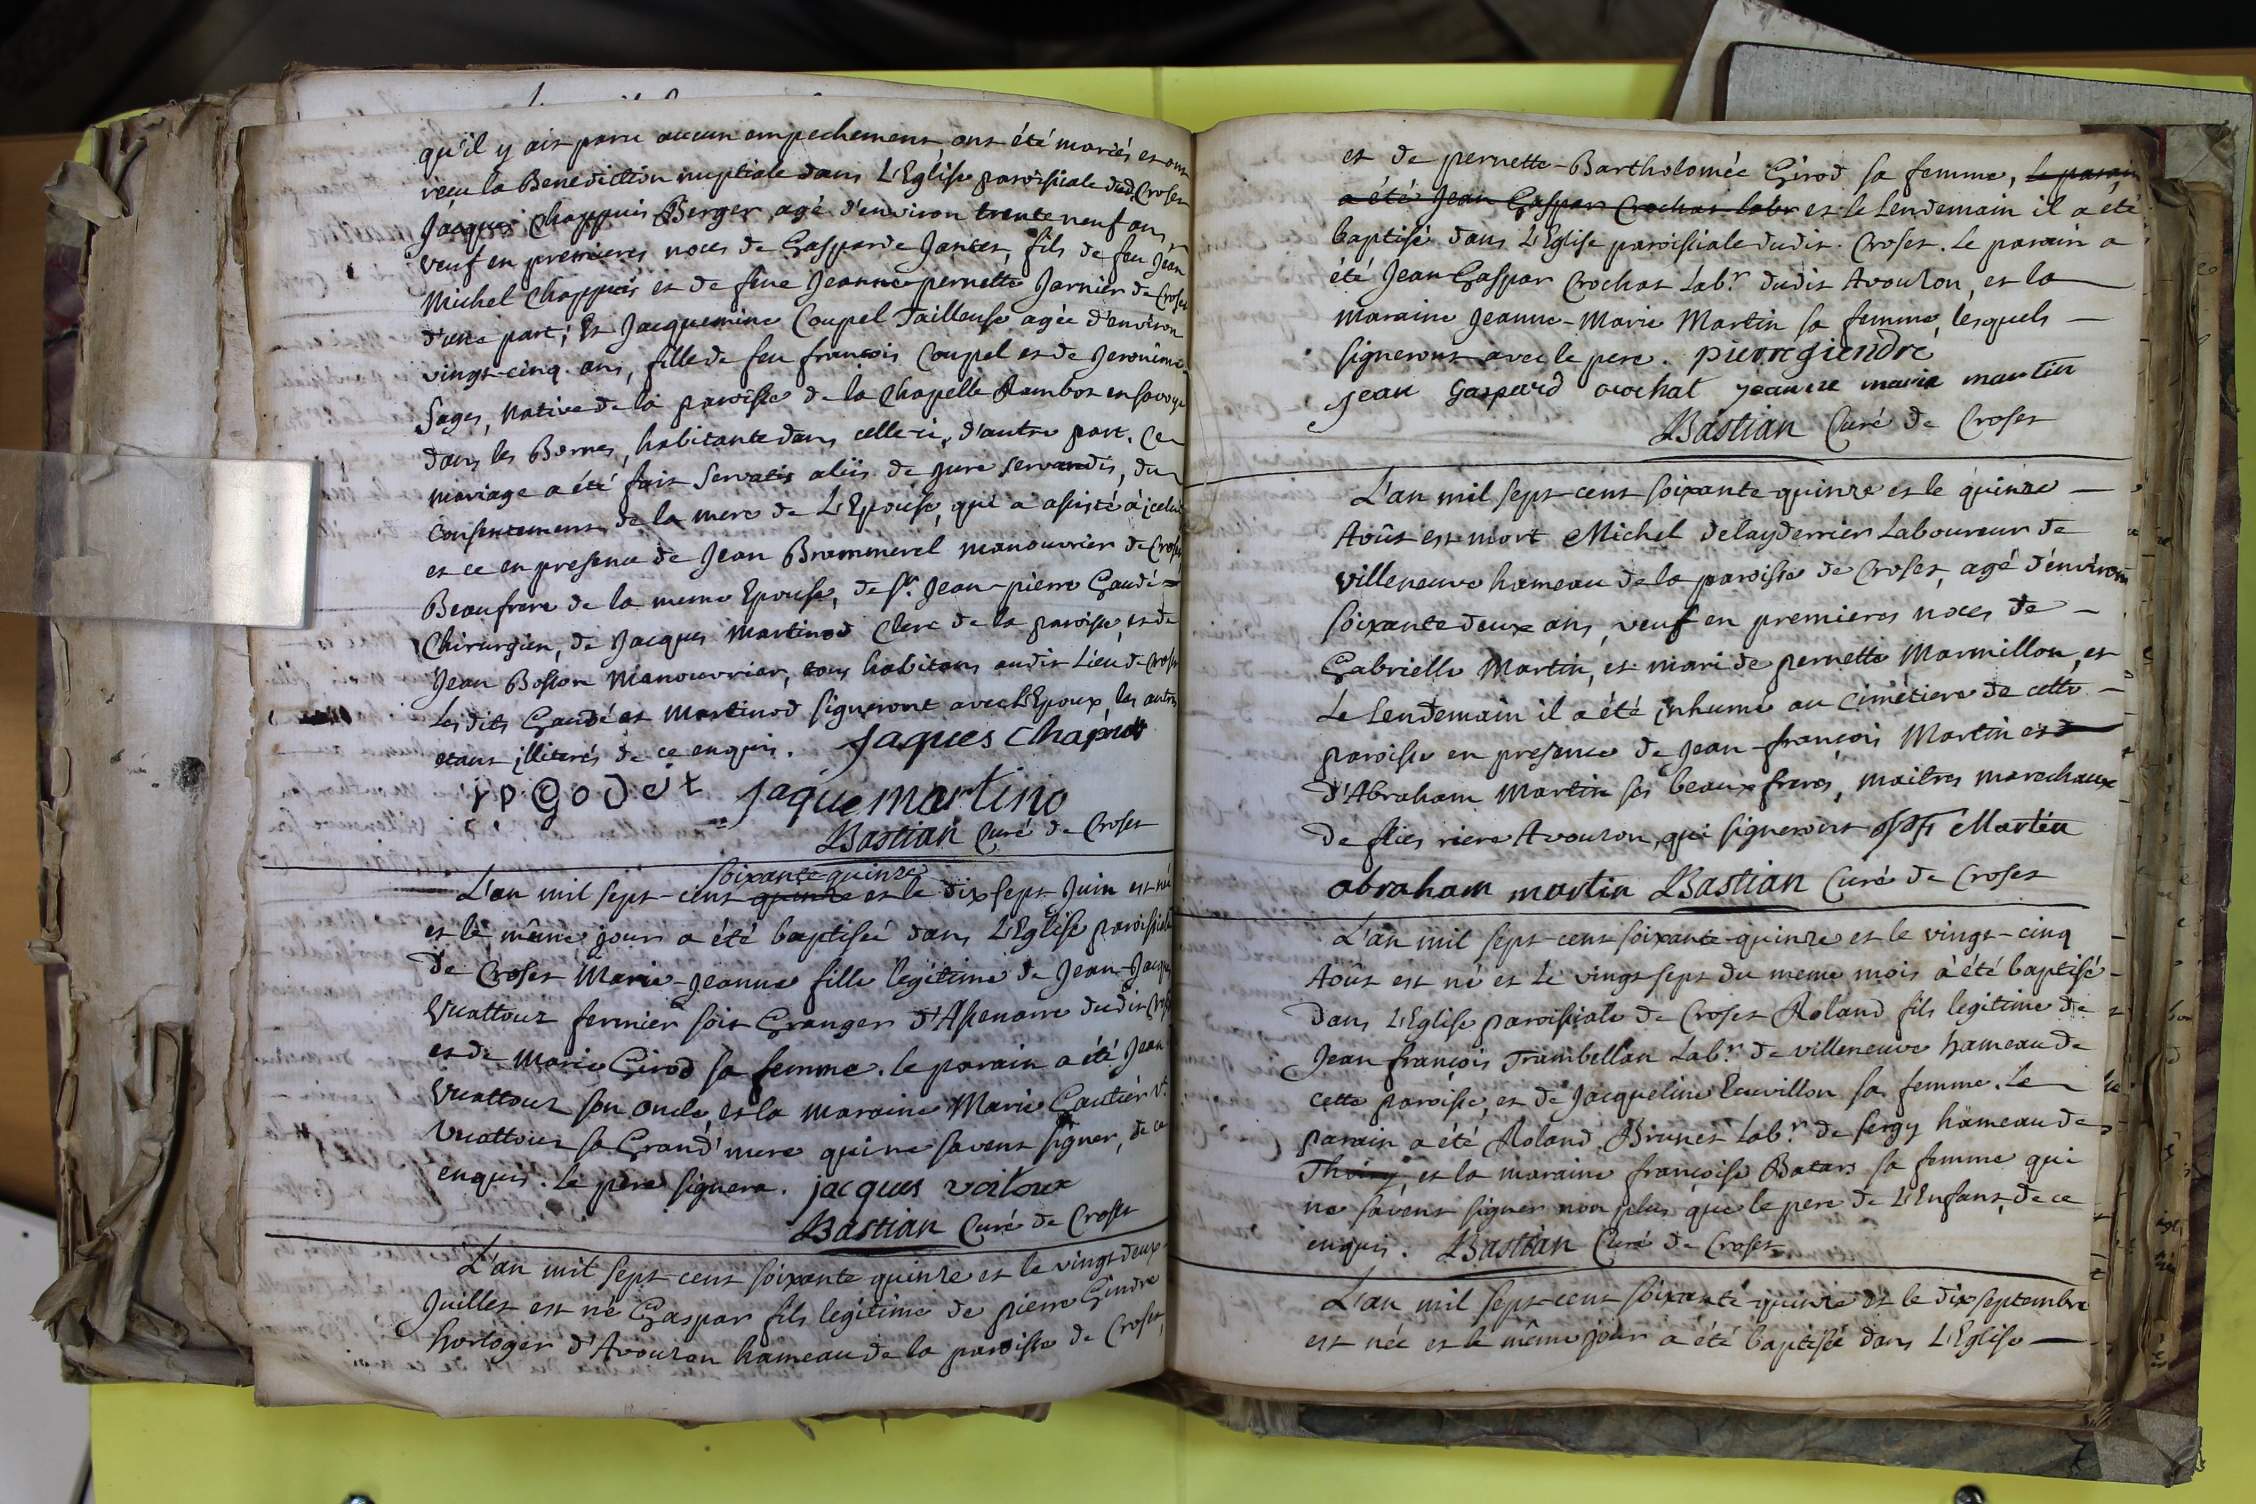 qu'il y ait paru aucun empechement ont été mariés et ont
reçu la Benediction nuptiale dans L'Eglise paroissiale dud. Croset
Jacques Chappuis Berger agé d'environ trente neuf ans,
veuf en premieres noces de Gasparde Jantet, fils de feu Jean
Michel Chappuis et de feue Jeanne-pernette Jarnier de Croset
d'une part; Et Jacquemine Coupel Tailleuse agée d'environ
vingt-cinq ans, fille de feu françois Coupel et de Jeronime
Sages, Native de la paroisse de la Chapelle Rambot en savoye
dans les Bornes, habitante dans celle-ci, d'autre part. Ce
mariage a été fait servatis aliis de jure servandis, du
consentement de la mere de L'Epouse, qui a assisté à icelui
et ce en presence de Jean Brommerel manouvrier de Croset
Beaufrere de la meme Epouse, de Sr. Jean-pierre Gaudé
Chirurgien, de Jacques Martinod Clerc de la paroisse, et de
Jean Bosson Manouvrier, tous habitans audit Lieu de Croset
Lesdits Gaudé et Martinod signeront avec L'Epoux, les autres
etant illiterés de ce enquis. Jaques Chapuis
j p Godet jaque martino
Bastian Curé de Croset
soixante-quinze
L'an mil sept-cent quinze et le dix sept Juin est née
et le même jour a été baptisée dans L'Eglise paroissiale
de Croset Marie-Jeanne fille legitime de Jean-Jacques
Vuattoux fermier soit Granger d'Asserans dudit Croset
et de Marie Girod sa femme. le parain a été Jean
Vuattoux son oncle et la maraine Marie Gautier Ve.
Vuattoux sa Grand'mere qui ne savent signer, de ce
enquis. Le père signera. jacques vatoux
Bastian Curé de Croset
L'an mil sept cent soixante quinze et le vingt deux
Juillet est né Gaspar fils legitime de pierre Gindre
horloger d'Avouzon hameau de la paroisse de Croset,
et de pernette-Bartholomée Girod sa femme, le parain
a été Jean Gaspar Crochat labr et le Lendemain il a été
baptisé dans L'Eglise paroissiale dudit Croset. Le parain a
été Jean Gaspar Crochat Labr. dudit Avouzon, et la
maraine Jeanne-Marie Martin sa femme, lesquels
signeront avec le pere. pierre giendre
jean Gaspard crochat jeanne marie martin
Bastian Curé de Croset
L'an mil sept-cent soixante-quinze et le quinze
Août est mort Michel delayderrier Laboureur de
villeneuve hameau de la paroisse de Croset, agé d'environ
soixante deux ans, veuf en premieres noces de
Gabrielle Martin, et mari de pernette Marmillon, et
Le Lendemain il a été inhumé au Cimétiere de cette
paroisse en presence de Jean-françois Martin et
d'Abraham Martin ses beaux freres, maitres marechaux
de flies riere Avouzon, qui signeront Martin
abraham martin Bastian Curé de Croset
L'an mil sept-cent soixante-quinze et le vingt-cinq
Août est né et Le vingt sept du meme mois à été baptisé
dans L'Eglise paroissiale de Croset Roland fils legitime de
Jean françois Trambellan Labr. de villeneuve hameau de
cette paroisse, et de Jacqueline Levrillon sa femme. Le
parain a été Roland Brunet Labr. de Sergy hameau de
Thoiry et la maraine françoise Batars sa femme qui
ne savent signer non plus que le pere de L'Enfant, de ce
enquis. Bastian Curé de Croset
L'an mil sept-cent soixante-quinze et le dix septembre
est née et le même jour a été baptisée dans L'Eglise